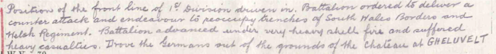 Position of the front line of 1st Division driven in. Battalion ordered to deliver a
counter attack and endeavour to reoccupy trenches of South Wales Borders and
Welsh Regiment. Battalion advanced under very heavy shell fire and suffered
heavy casualties. Drove the Germans out of the grounds of the Chateau at GHELUVELT